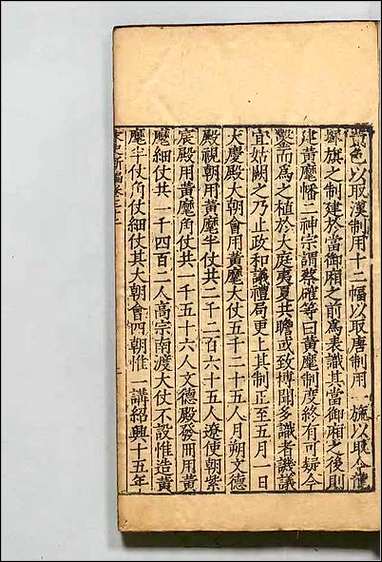 色以取漢制用十二幅以取唐制用一旒以取今禮
纛旗之制建於當御廂之前爲表識其當御廂之後則
建黄麾幡二神宗謂蔡確等曰黄麾制度終有可疑今
鑿而爲之植於大庭夷夏共瞻或致博聞多識者譏議
宜姑闕之乃止政和議禮局更上其制正至五月一日
大慶殿大朝會用黄麾大仗五千二十五人月朔文德
殿視朝用黄麾半仗共二千二百六十五人遼使朝紫
宸殿用黄麾角仗共一千五十六人文德殿發冊用黄
麾細仗共一千四百二人高宗南渡大仗不設惟造黄
麾半仗角仗細仗其大朝會四朝惟一講紹興十五年
宋史新編卷三十二